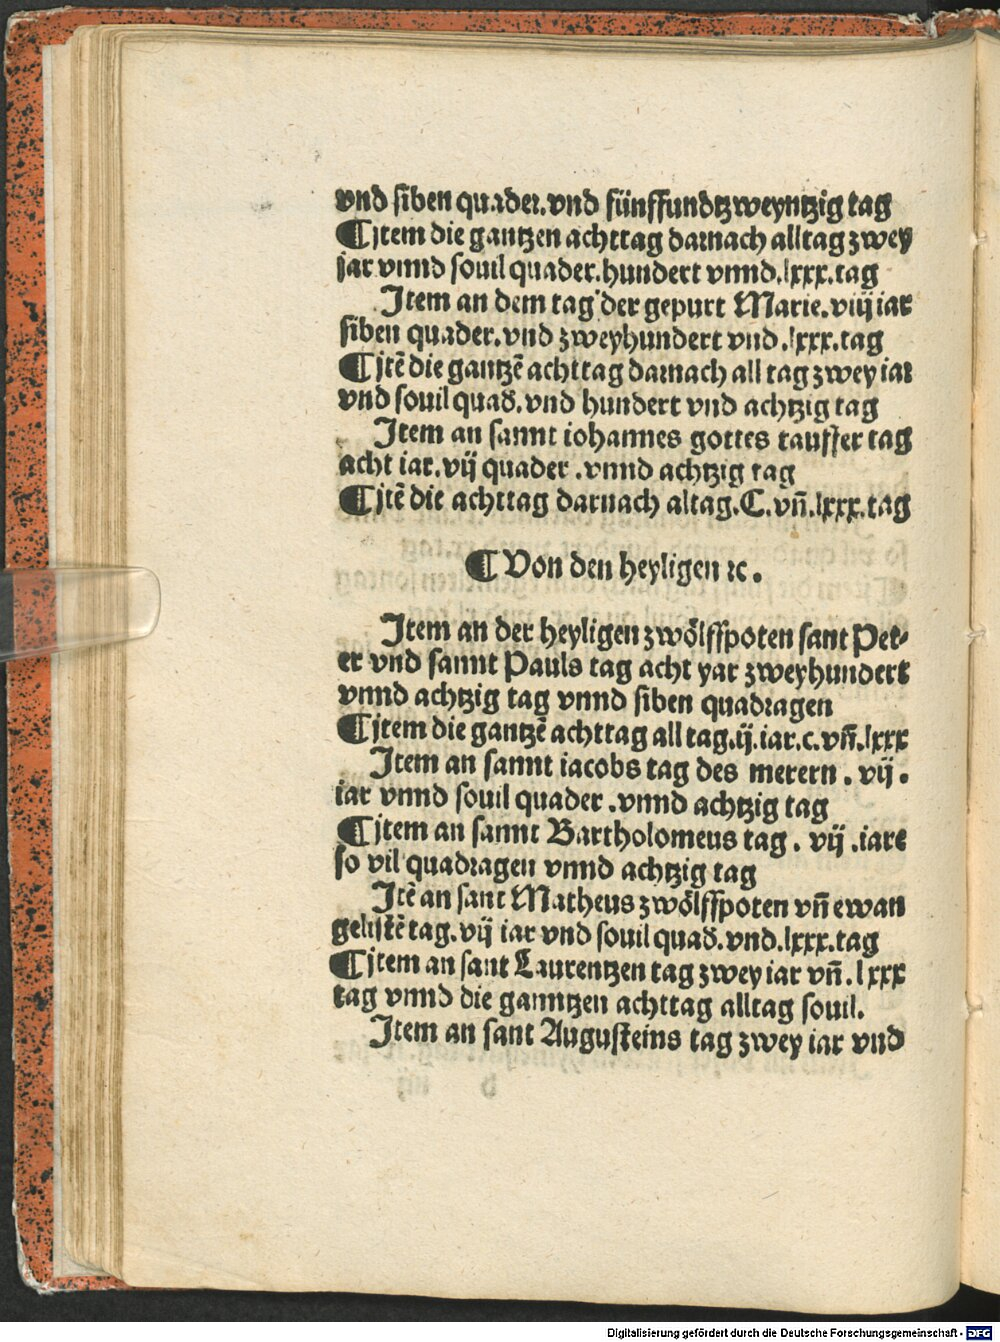 vnd siben quader. vnd fünffundtzweyntzig tag
¶ jtem die gantzen achttag darnach alltag zwey
jar vnnd souil quader. hundert vnnd .lxxx. tag
Item an dem tag der gepurt Marie. viij iar
siben quader. vnd zweyhundert vnd .lxxx. tag
¶ jtē die gantzē achttag darnach all tag zwey iar
vnd souil quad. vnd hundert vnd achtzig tag
Item an sannt iohannes gottes tauffer tag
acht iar. vij quader . vnnd achtzig tag
¶ jtē die achttag darnach altag. C. vn̄. lxxx. tag
¶ Von den heyligen ⁊c .
Item an der heyligen zwölffpoten sant Pet⸗
er vnd sannt Pauls tag acht yar zweyhundert
vnnd achtzig tag vnnd siben quadragen
¶ jtem die gantzē achttag all tag. ij. iar. c. vn̄. lxxx
Item an sannt iacobs tag des merern . vij .
iar vnnd souil quader . vnnd achtzig tag
¶ jtem an sannt Bartholomeus tag . vij . iare
so vil quadragen vnnd achtzig tag
Itē an sant Matheus zwölffpoten vn̄ ewan
gelistē tag. vij iar vnd souil quad. vnd. lxxx. tag
¶ jtem an sant Laurentzen tag zwey iar vn̄. lxxx
tag vnnd die ganntzen achttag alltag souil.
Item an sant Augusteins tag zwey iar vnd
Digitalisierung gefördert durch die Deutsche Forschungsgemeinschaft - DFG